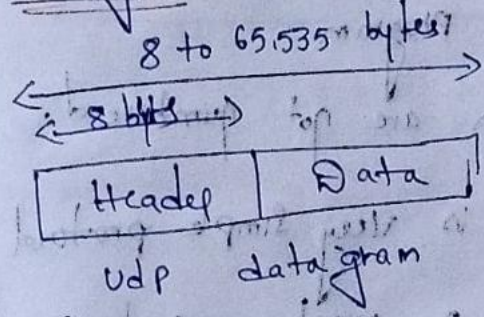 8 to 65,535 bytes
8 byts
Header Data
Udp data gram